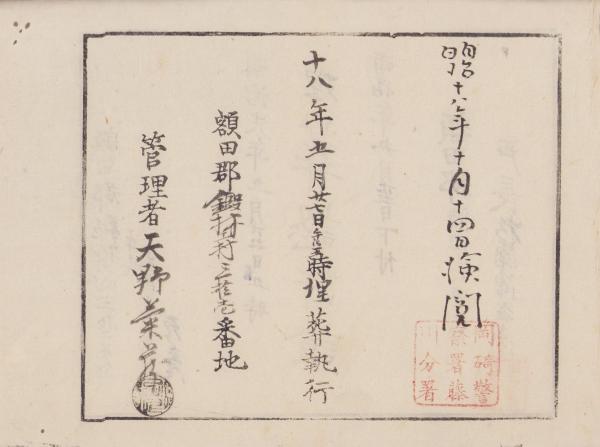 昭十八年十月十四日検閲
岡崎警
察署藤
川分署
十八年五月廿七日午后五時埋葬執行
額田郡鍛埜村三拾壱番地
管理者天野